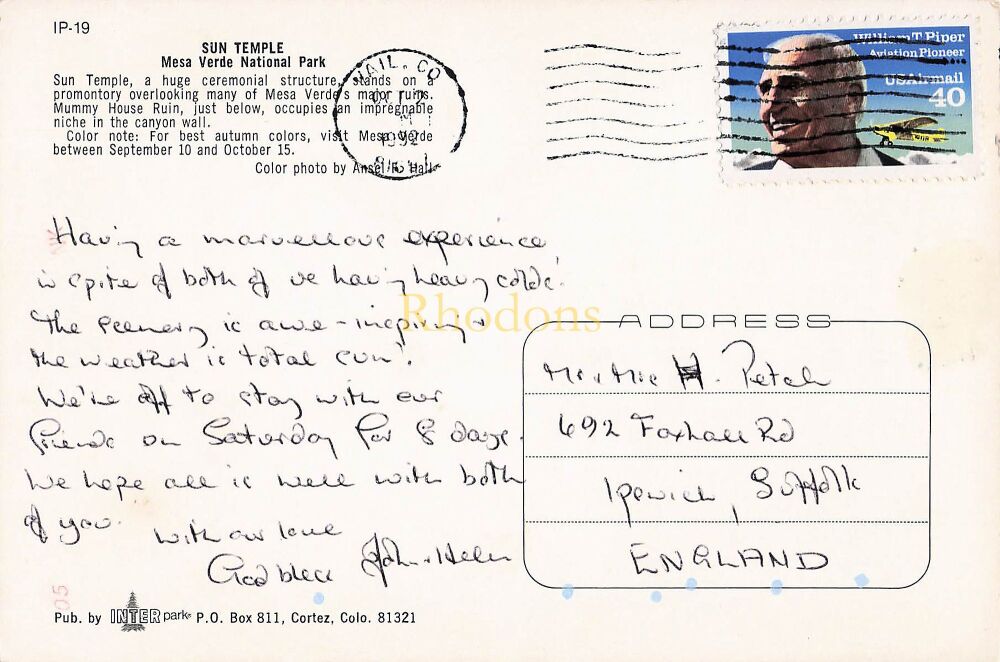 IP-19
SUN TEMPLE
Mesa Verde National Park
Sun Temple, a huge ceremonial structure, stands on a
promontory overlooking many of Mesa Verde's major ruins.
Mummy House Ruin, just below, occupies an impregnable
niche in the canyon wall.
Color note: For best autumn colors, visit Mesa Verde
between September 10 and October 15.
Color photo by Ansel F. Hall
VAIL, CO
1992
William T. Piper
Aviation Pioneer
USAirmail
40
Having a marvellous experience
in spite of both of us having heavy colds!
The scenery is awe-inspiring &
the weather is total sun!
We're off to stay with our
friends on Saturday for 8 days.
We hope all is well with both
of you.
With our love
God bless John & Helen
Rhodons
ADDRESS
Mr & Mrs H. Petch
692 Foxhall Rd
Ipswich, Suffolk
ENGLAND
Pub. by INTERpark P.O. Box 811, Cortez, Colo. 81321